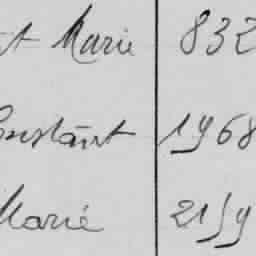 t Marie 832
Constant 1968
Marie 21